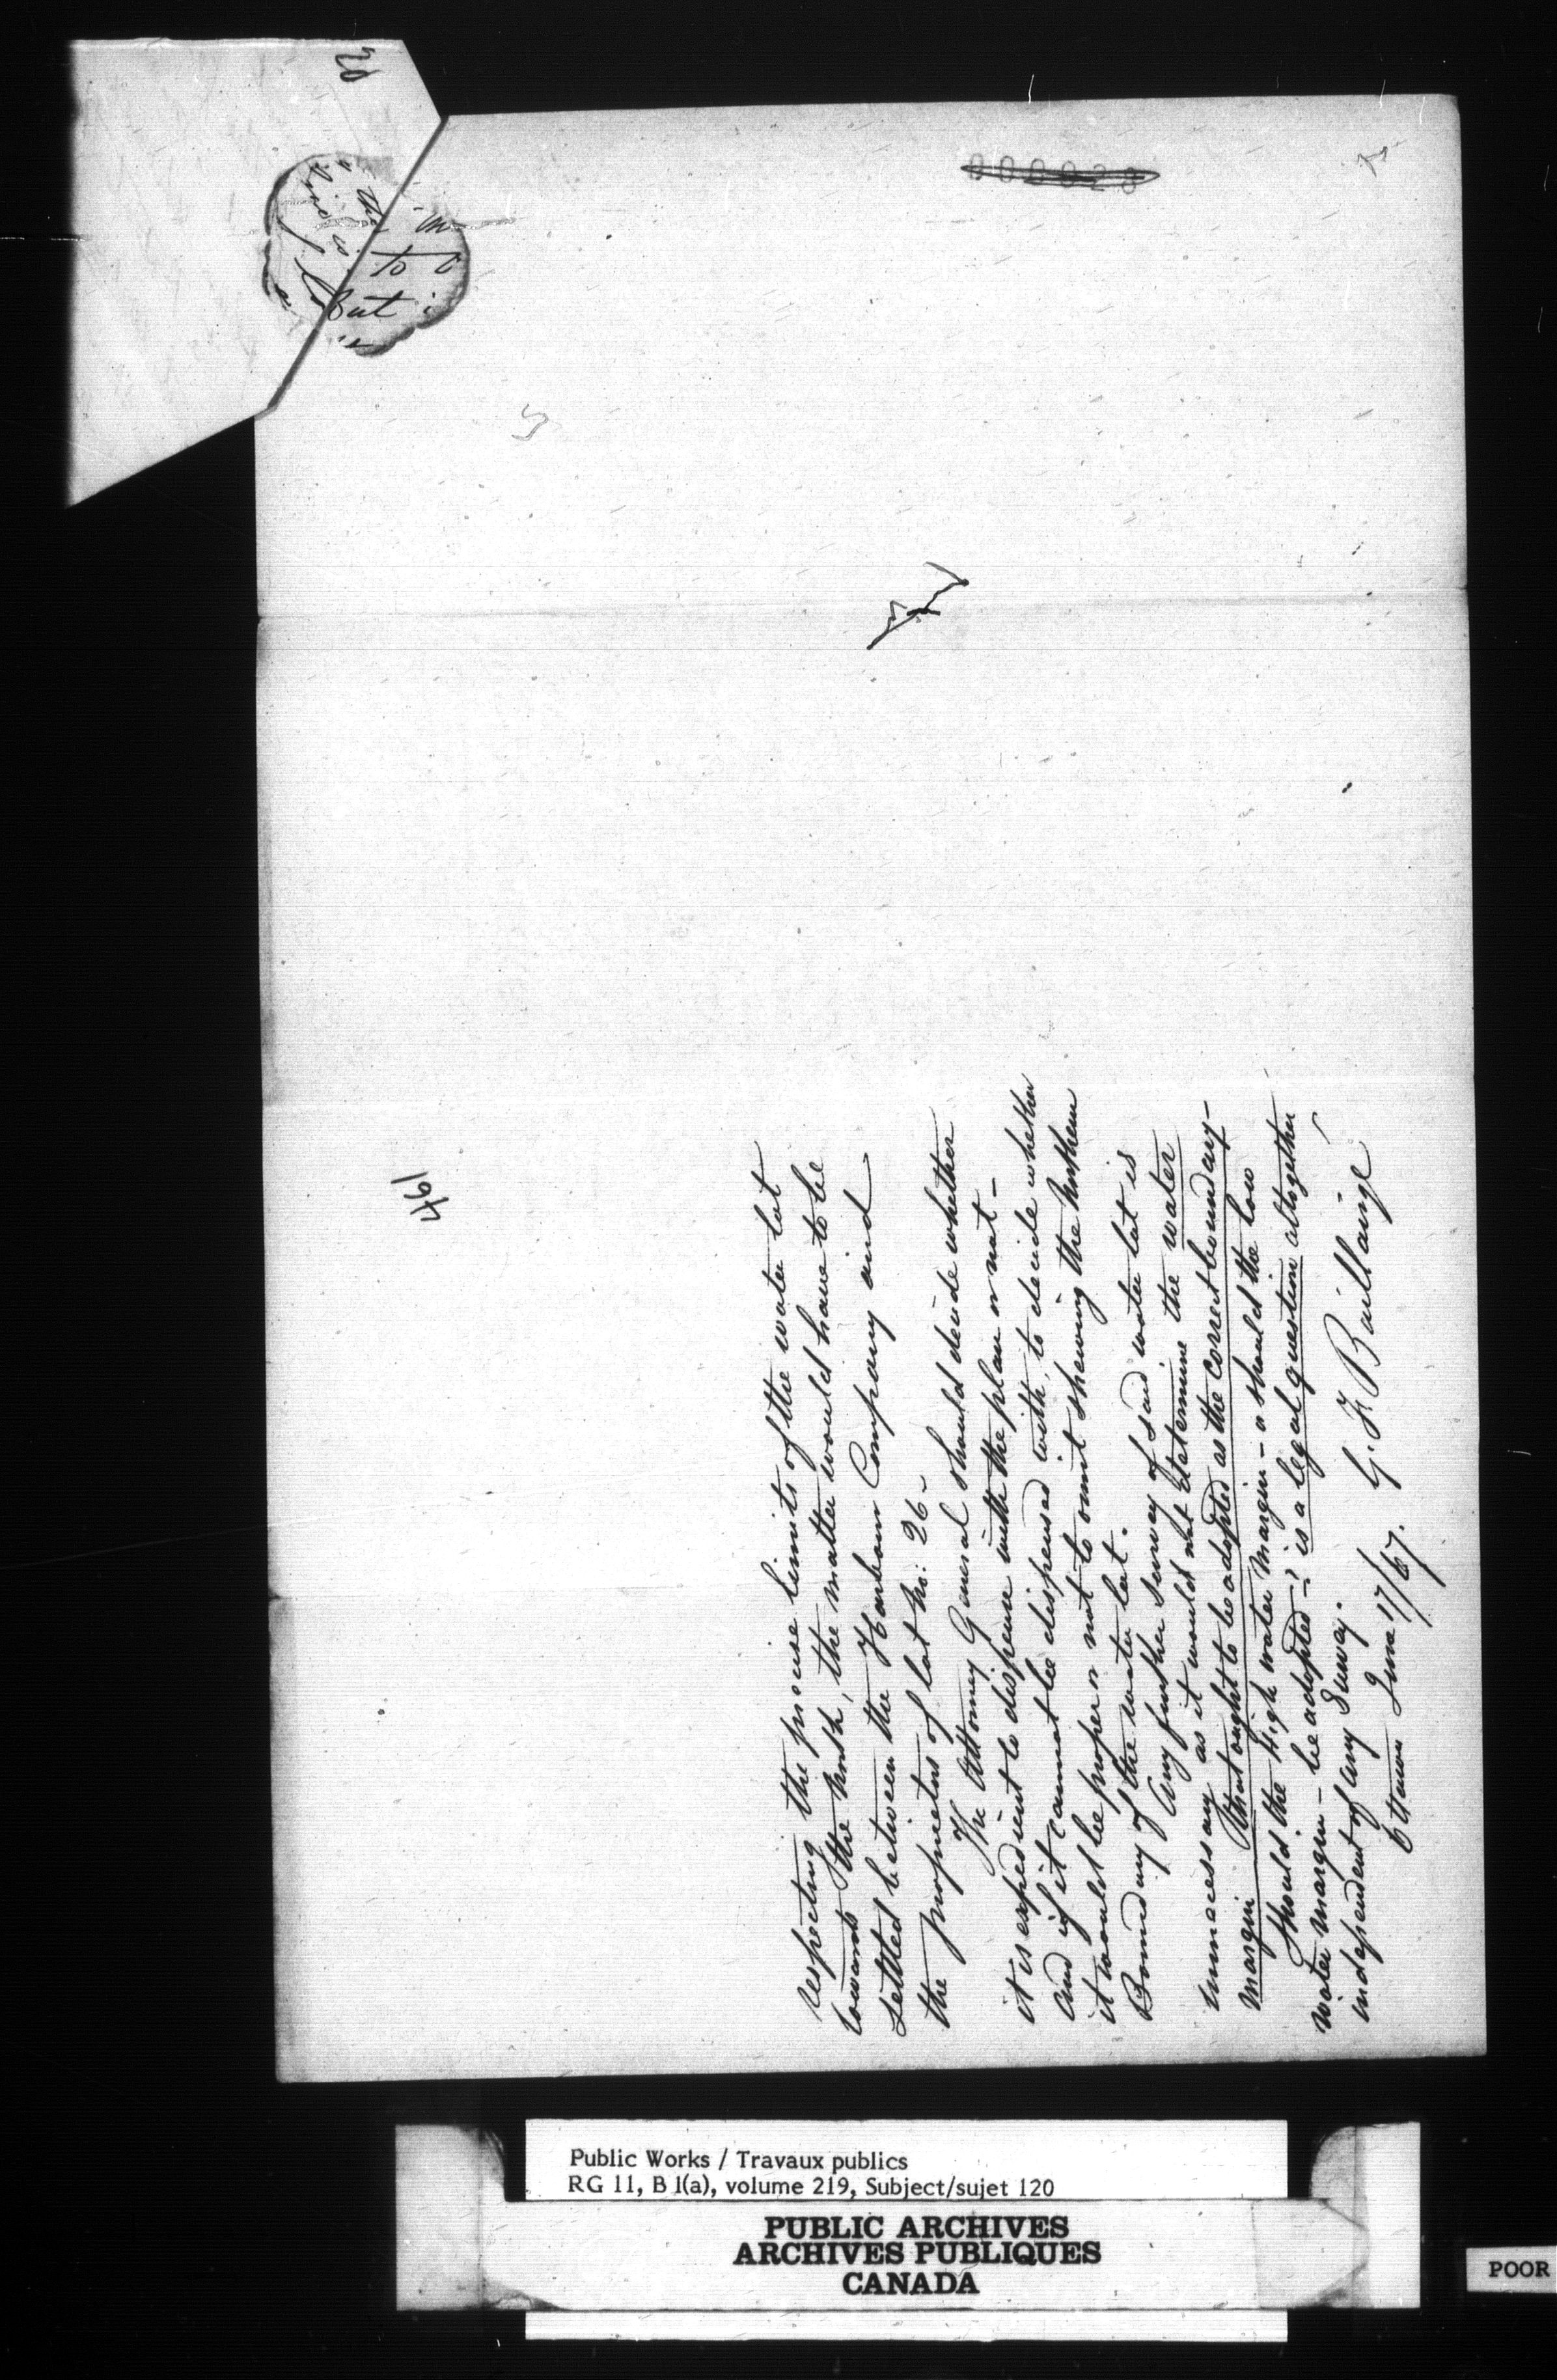 respecting the precise limits of the water lot
towards the north, the matter would have to be
settled between the Harbour Company and
the proprietors of lot No: 26 -
The Attorney General should decide whether
it is expedient to dispense with the plan or not -
and if it cannot be dispensed with, to decide whether
it would be proper or not to omit shewing the northern
Boundary of the water lot.
Any further survey of said water lot is
unnecessary as it would not determine the water
margin that ought to be adopted as the correct boundary -
Should the High water margin - or should the low
water margin - be adopted -? is a legal question altogether
independent of any Survey.
G. F. Baillairgé
Ottawa June 17/67.
461
20
000028
the
to
but
Public Works / Travaux publics
RG 11, B 1(a), volume 219, Subject/sujet 120
PUBLIC ARCHIVES
ARCHIVES PUBLIQUES
CANADA
POOR